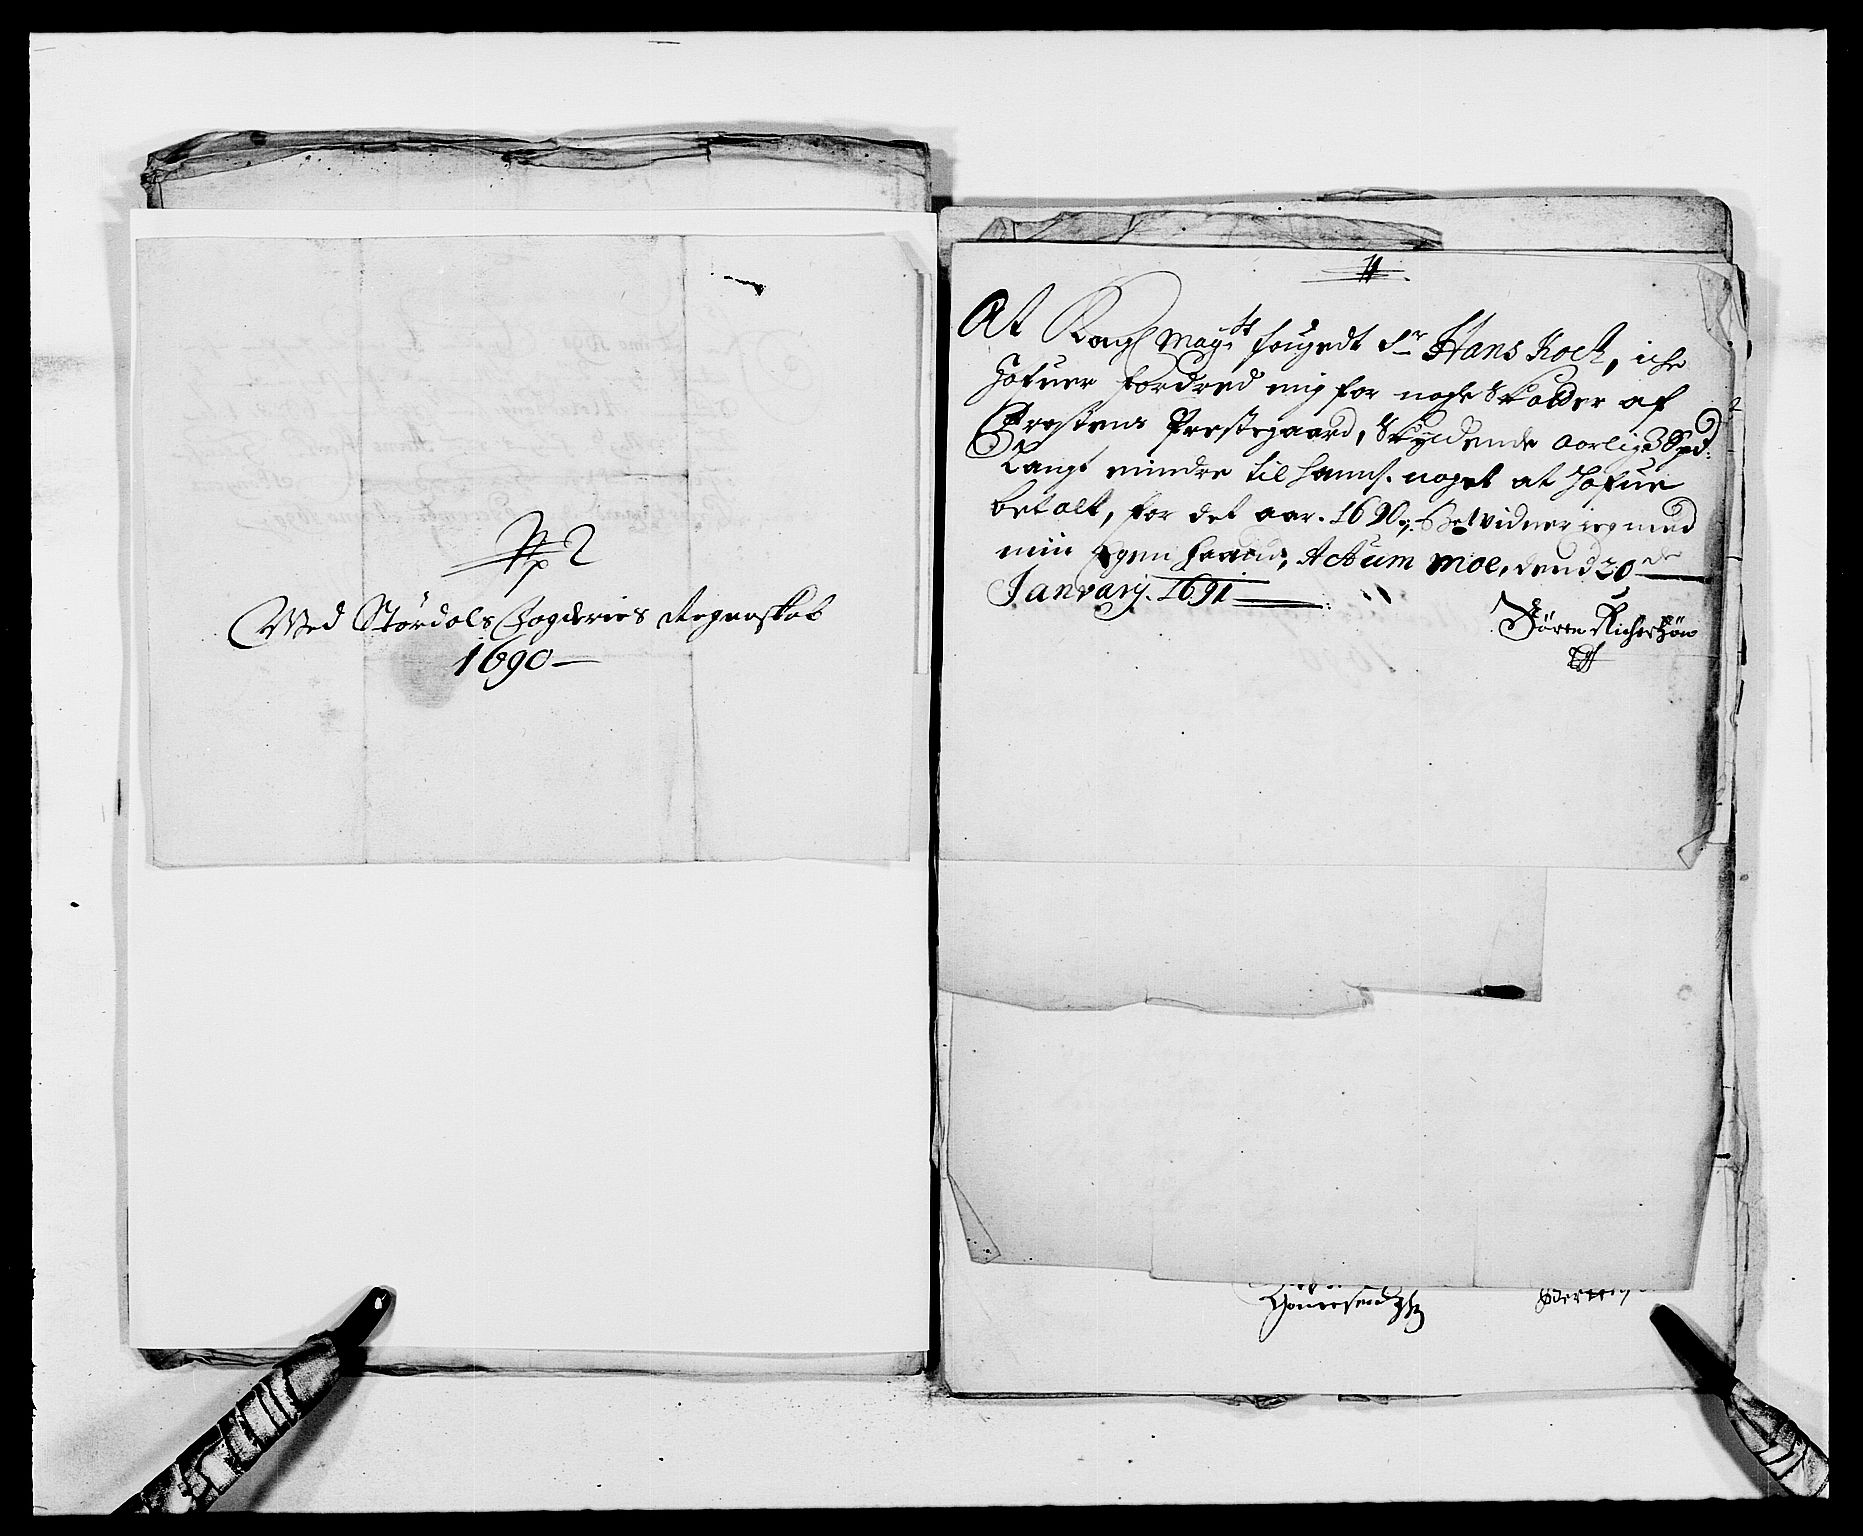 Med Størdals Fogderies Regenskab
1690
At Kongl May.ts fougedt Sr Hans Koch, iche
hafuer fordred mig for nogle Skatder af
Frostens Prestegaard, Skyldende aarlig 3 Spd:
Langt mindre til hannem noget at hafue
betalt, for det aar 1690, Betvidner ieg med
min Egen haand, Actum Moe, dend 20de
January. 1691
Sören